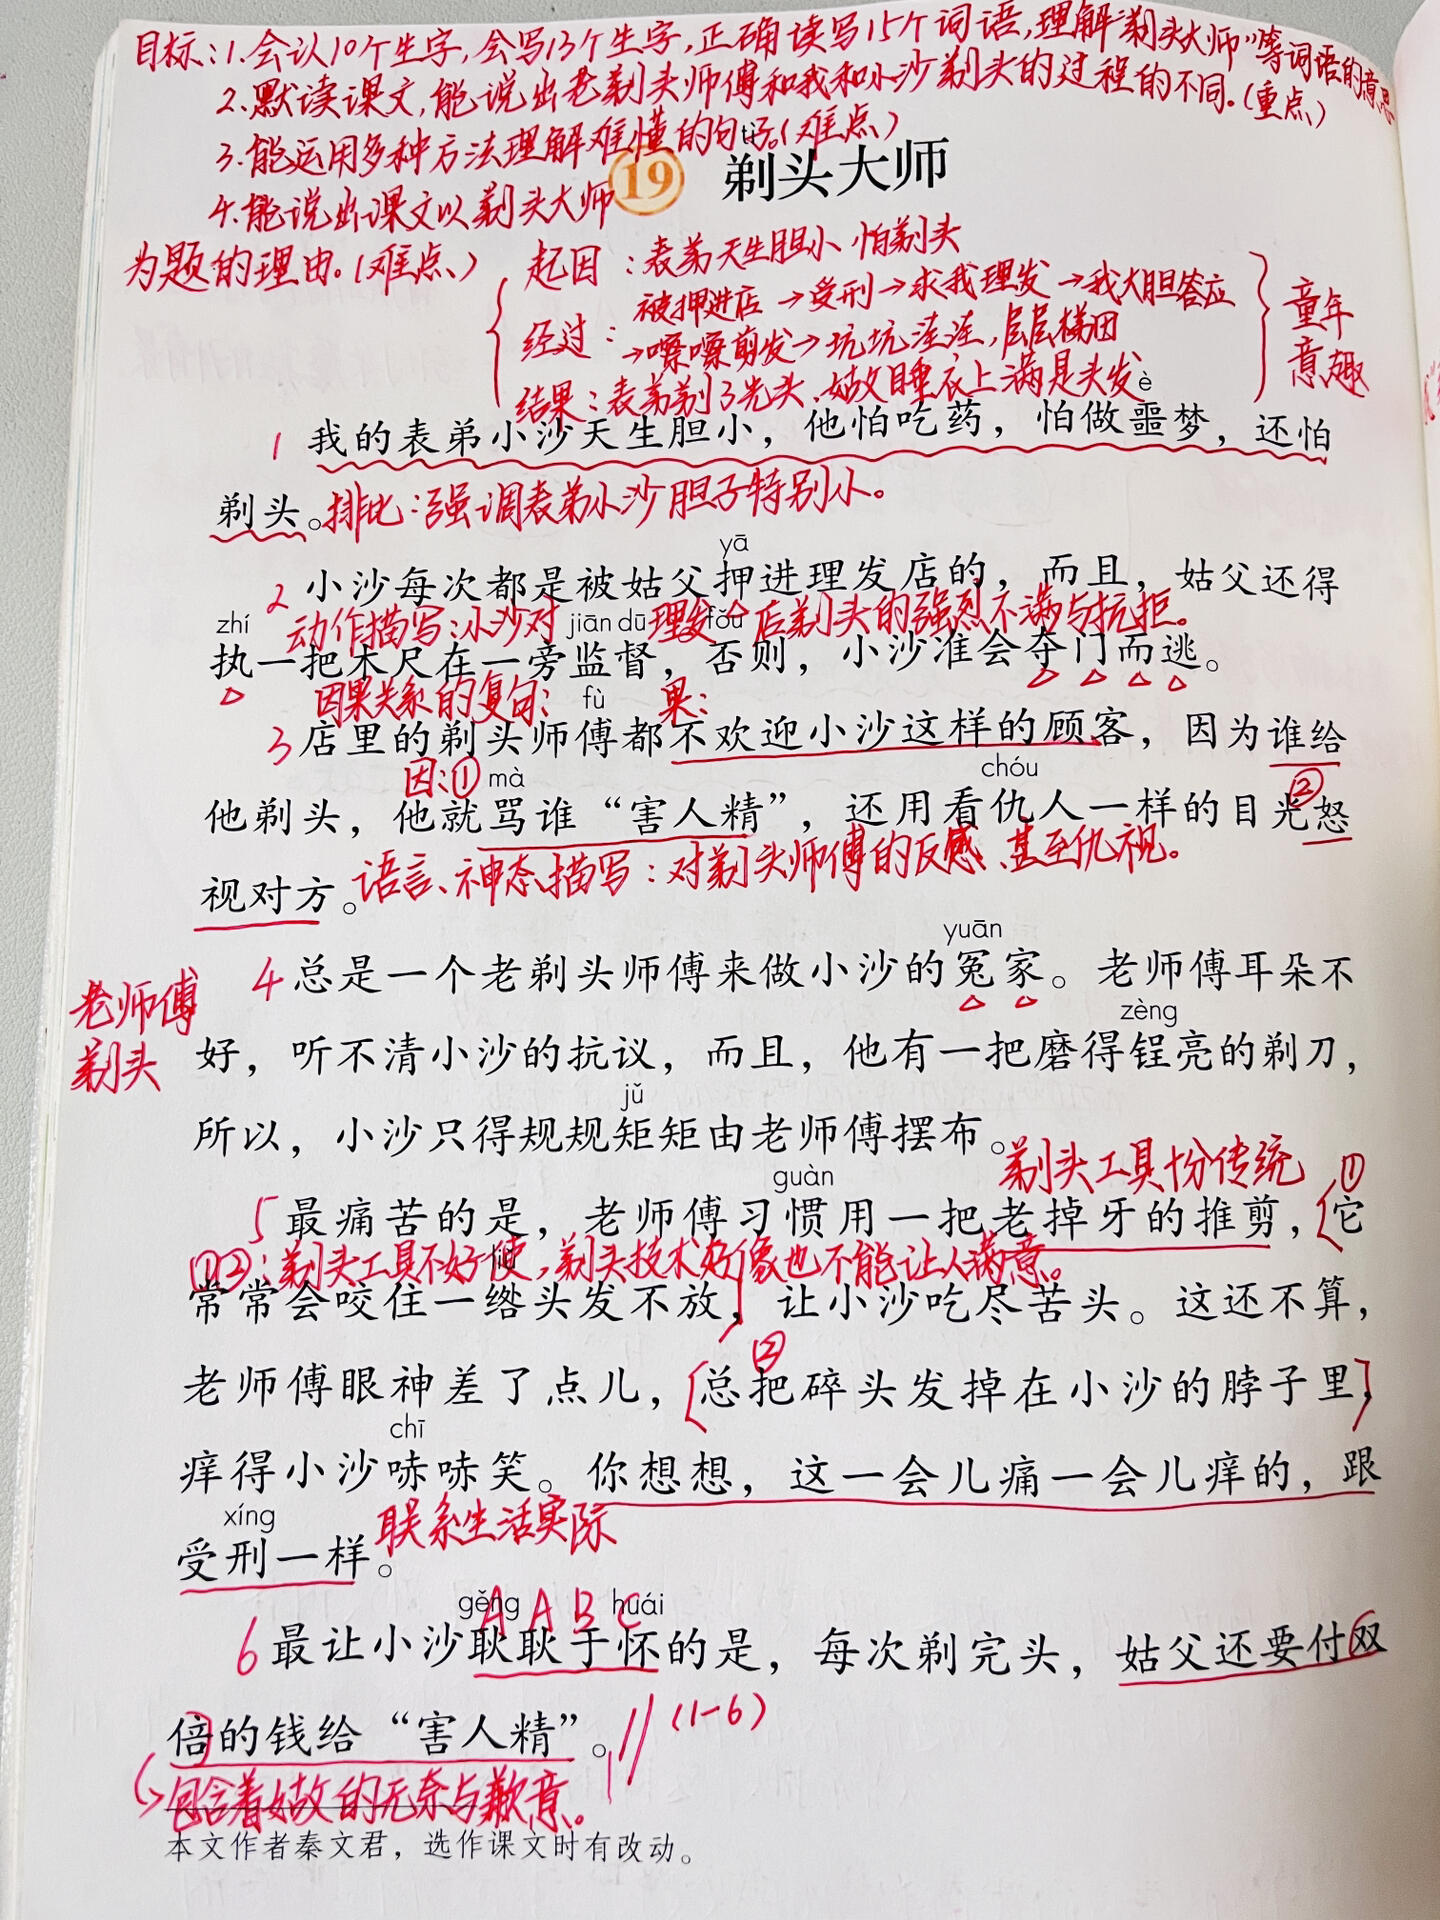 目标：1.会认10个生字，会写13个生字，正确读写15个词语，理解“剃头大师”等词语的意思
2.默读课文，能说出老剃头师傅和我和小沙剃头的过程的不同。（重点）
3.能运用多种方法理解难懂的句子。（难点）
4.能说出课文以剃头大师
为题的理由。（难点）
tì
19 剃头大师
起因：表弟天生胆小 怕剃头
经过：被押进店→受刑→求我理发→我大胆答应
→嚓嚓剪发→坑坑洼洼，层层梯田
结果：表弟剃了光头、姑父睡衣上满是头发
童年
意趣
è
1 我的表弟小沙天生胆小，他怕吃药，怕做噩梦，还怕
剃头。排比：强调表弟小沙胆子特别小。
yā
2 小沙每次都是被姑父押进理发店的，而且，姑父还得
动作描写：小沙对理发店剃头的强烈不满与抗拒。
zhí jiān dū fǒu
执一把木尺在一旁监督，否则，小沙准会夺门而逃。
因果关系的复句： 果：
fù
3 店里的剃头师傅都不欢迎小沙这样的顾客，因为谁给
因：① mà chóu ②
他剃头，他就骂谁“害人精”，还用看仇人一样的目光怒
视对方。语言、神态描写：对剃头师傅的反感、甚至仇视。
yuān
4 总是一个老剃头师傅来做小沙的冤家。老师傅耳朵不
老师傅
剃头
zèng
好，听不清小沙的抗议，而且，他有一把磨得锃亮的剃刀，
jǔ
所以，小沙只得规规矩矩由老师傅摆布。
剃头工具十分传统 ①
guàn
5 最痛苦的是，老师傅习惯用一把老掉牙的推剪，它
①②：剃头工具不好使，剃头技术好像也不能让人满意。
常常会咬住一绺头发不放，让小沙吃尽苦头。这还不算，
②
老师傅眼神差了点儿，总把碎头发掉在小沙的脖子里，
chī
痒得小沙哧哧笑。你想想，这一会儿痛一会儿痒的，跟
xíng
受刑一样。联系生活实际
gěng huái
A A B C
6 最让小沙耿耿于怀的是，每次剃完头，姑父还要付双
倍的钱给“害人精”。 (1-6)
包含着姑父的无奈与歉意。
本文作者秦文君，选作课文时有改动。